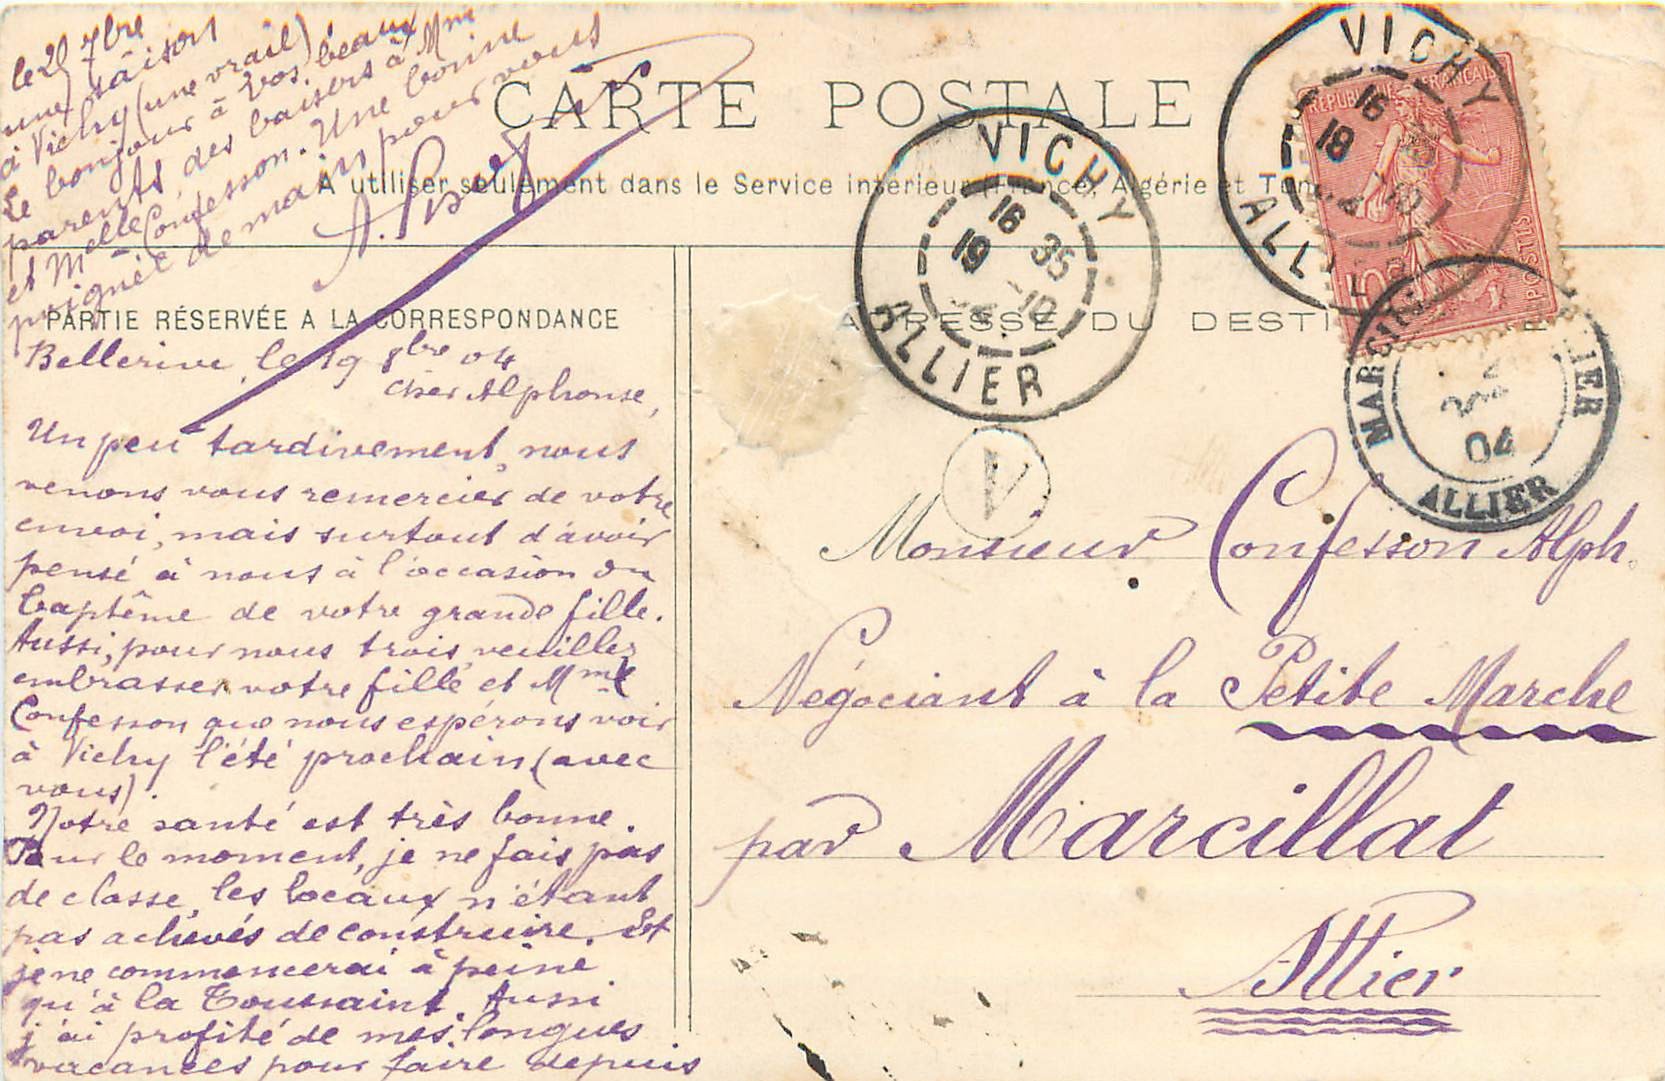 CARTE POSTALE
A utiliser seulement dans le Service intérieur (France, Algérie et Tun
PARTIE RÉSERVÉE A LA CORRESPONDANCE
Bellerive, le 19 8bre 04
Cher Alphonse,
Un peu tardivement, nous
venons vous remercier de votre
envoi, mais surtout d'avoir
pensé à nous à l'occasion du
baptême de votre grande fille.
Aussi, pour nous trois, veuillez
embrasser votre fille et Mme
Confesson que nous espérons voir
à Vichy l'été prochain (avec
vous).
Notre santé est très bonne.
Pour le moment, je ne fais pas
de classe, les locaux n'étant
pas achevés de construire. Et
je ne commencerai à peine
qu'à la Toussaint. Aussi
j'ai profité de mes longues
vacances pour faire depuis
le 20 7bre
une saison
à Vichy (une vraie)
Le bonjour à vos beaux
parents, des baisers à Mme
et Melle Confesson. Une bonne
poignée de main pour vous
ADRESSE DU DESTI
Monsieur Confesson Alph.
Négociant à la Petite Marche
par Marcillat
Allier
VICHY
16 35
19 -10
04
ALLIER
VICHY
16
19 -10
ALLIER
RÉPUBLIQUE FRANÇAISE
POSTES
04
ALLIER